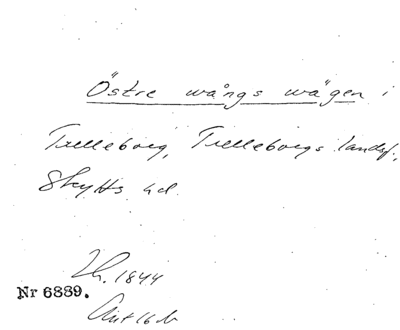 Östre wångs wägen i
Trelleborg, Trelleborgs landsf.,
Skytts hd.
1844
Nr 6889.